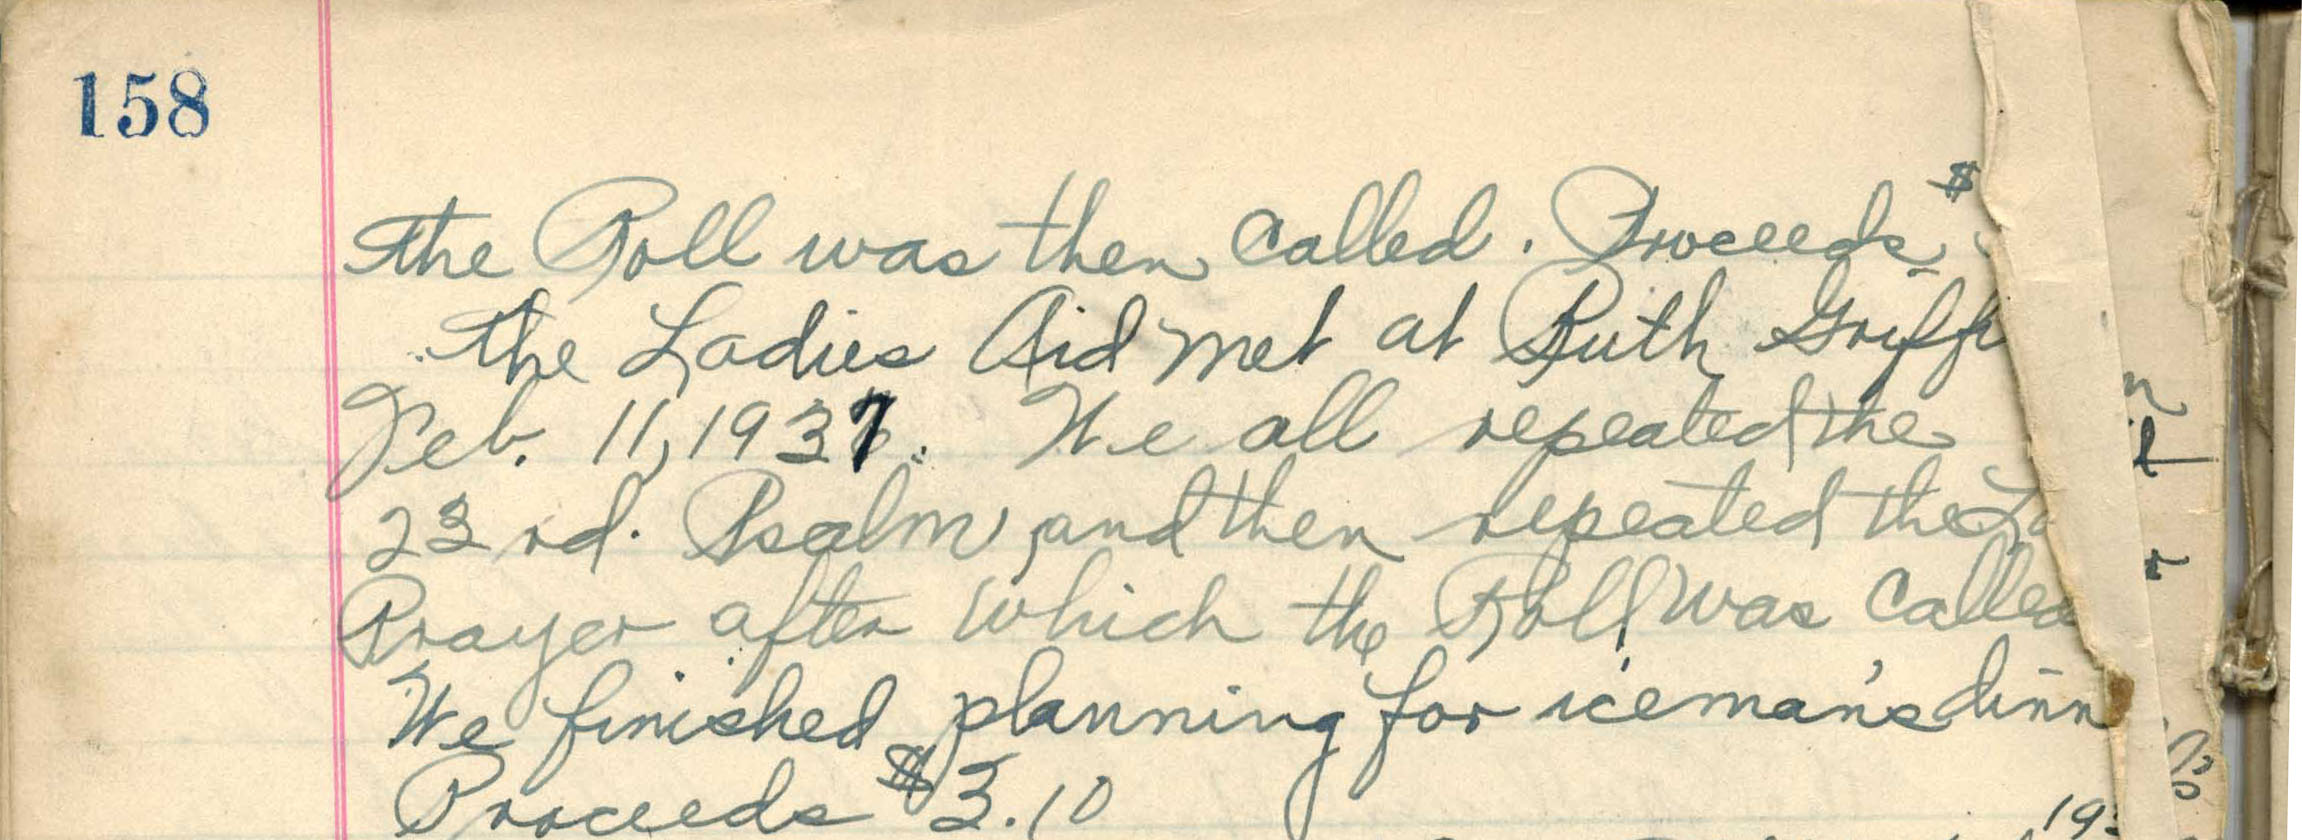 158
the Roll was then called. Proceeds $
the Ladies Aid met at Ruth
Feb. 11, 1937. We all repeated the
23 rd. Psalm, and then repeated the
Prayer after which the Roll was called
We finished planning for iceman's dinn
Proceeds $3.10
193